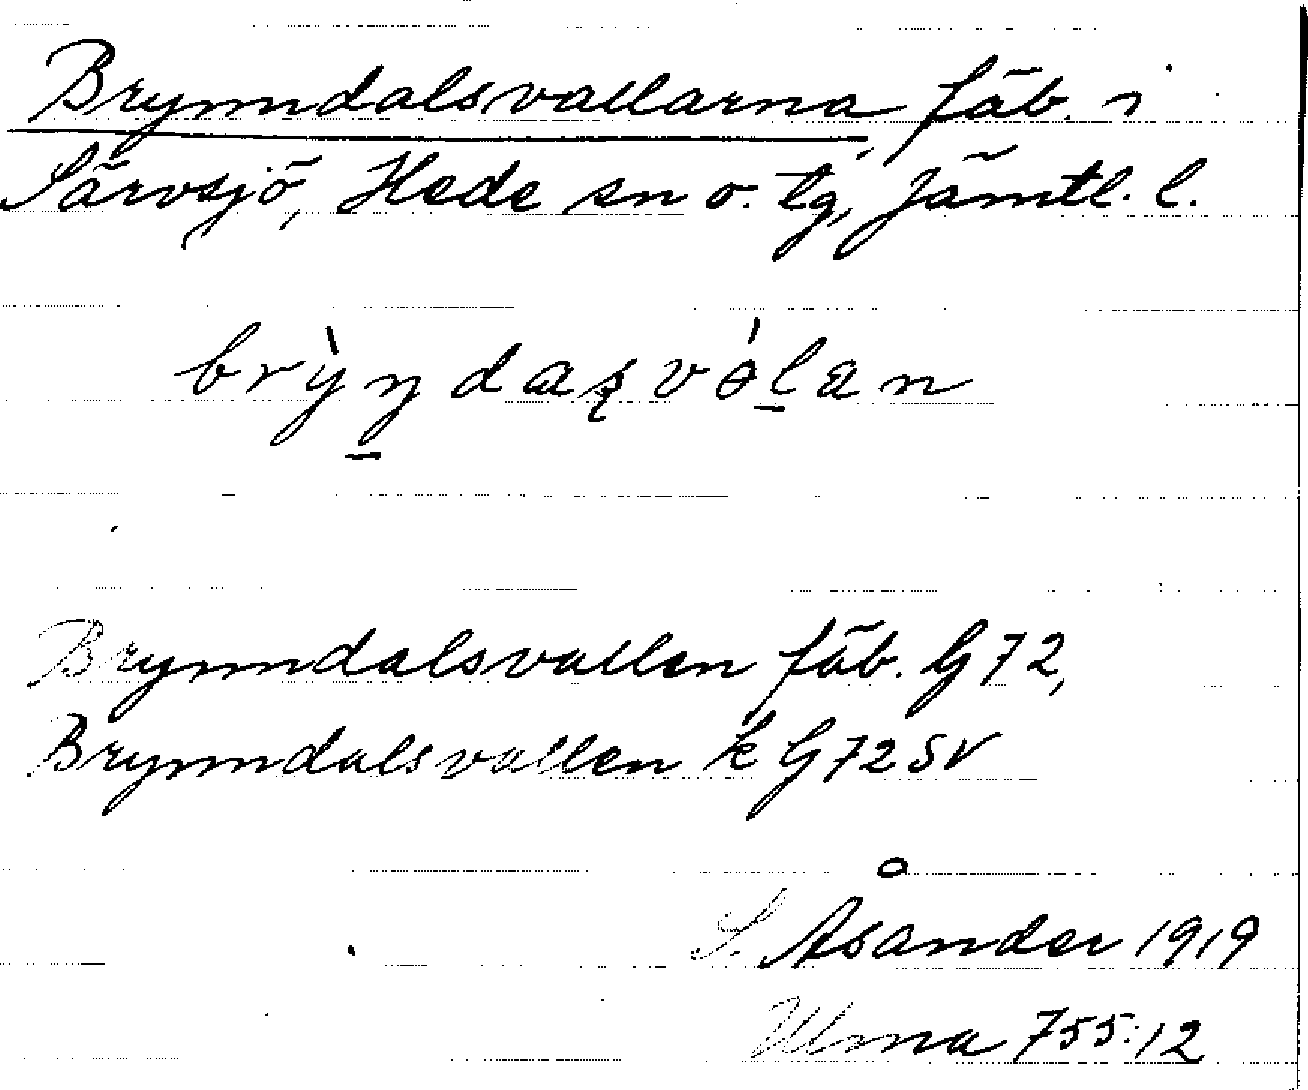 Brynndalsvallarna, fäb. i
Särvsjö, Hede sn o. tg, Jämtl. l.
brỳndaʂvɵ́lan
Brynndalsvallen fäb. G72,
Brynndalsvallen k G72SV
S. Åsander 1919
Ulma 755:12